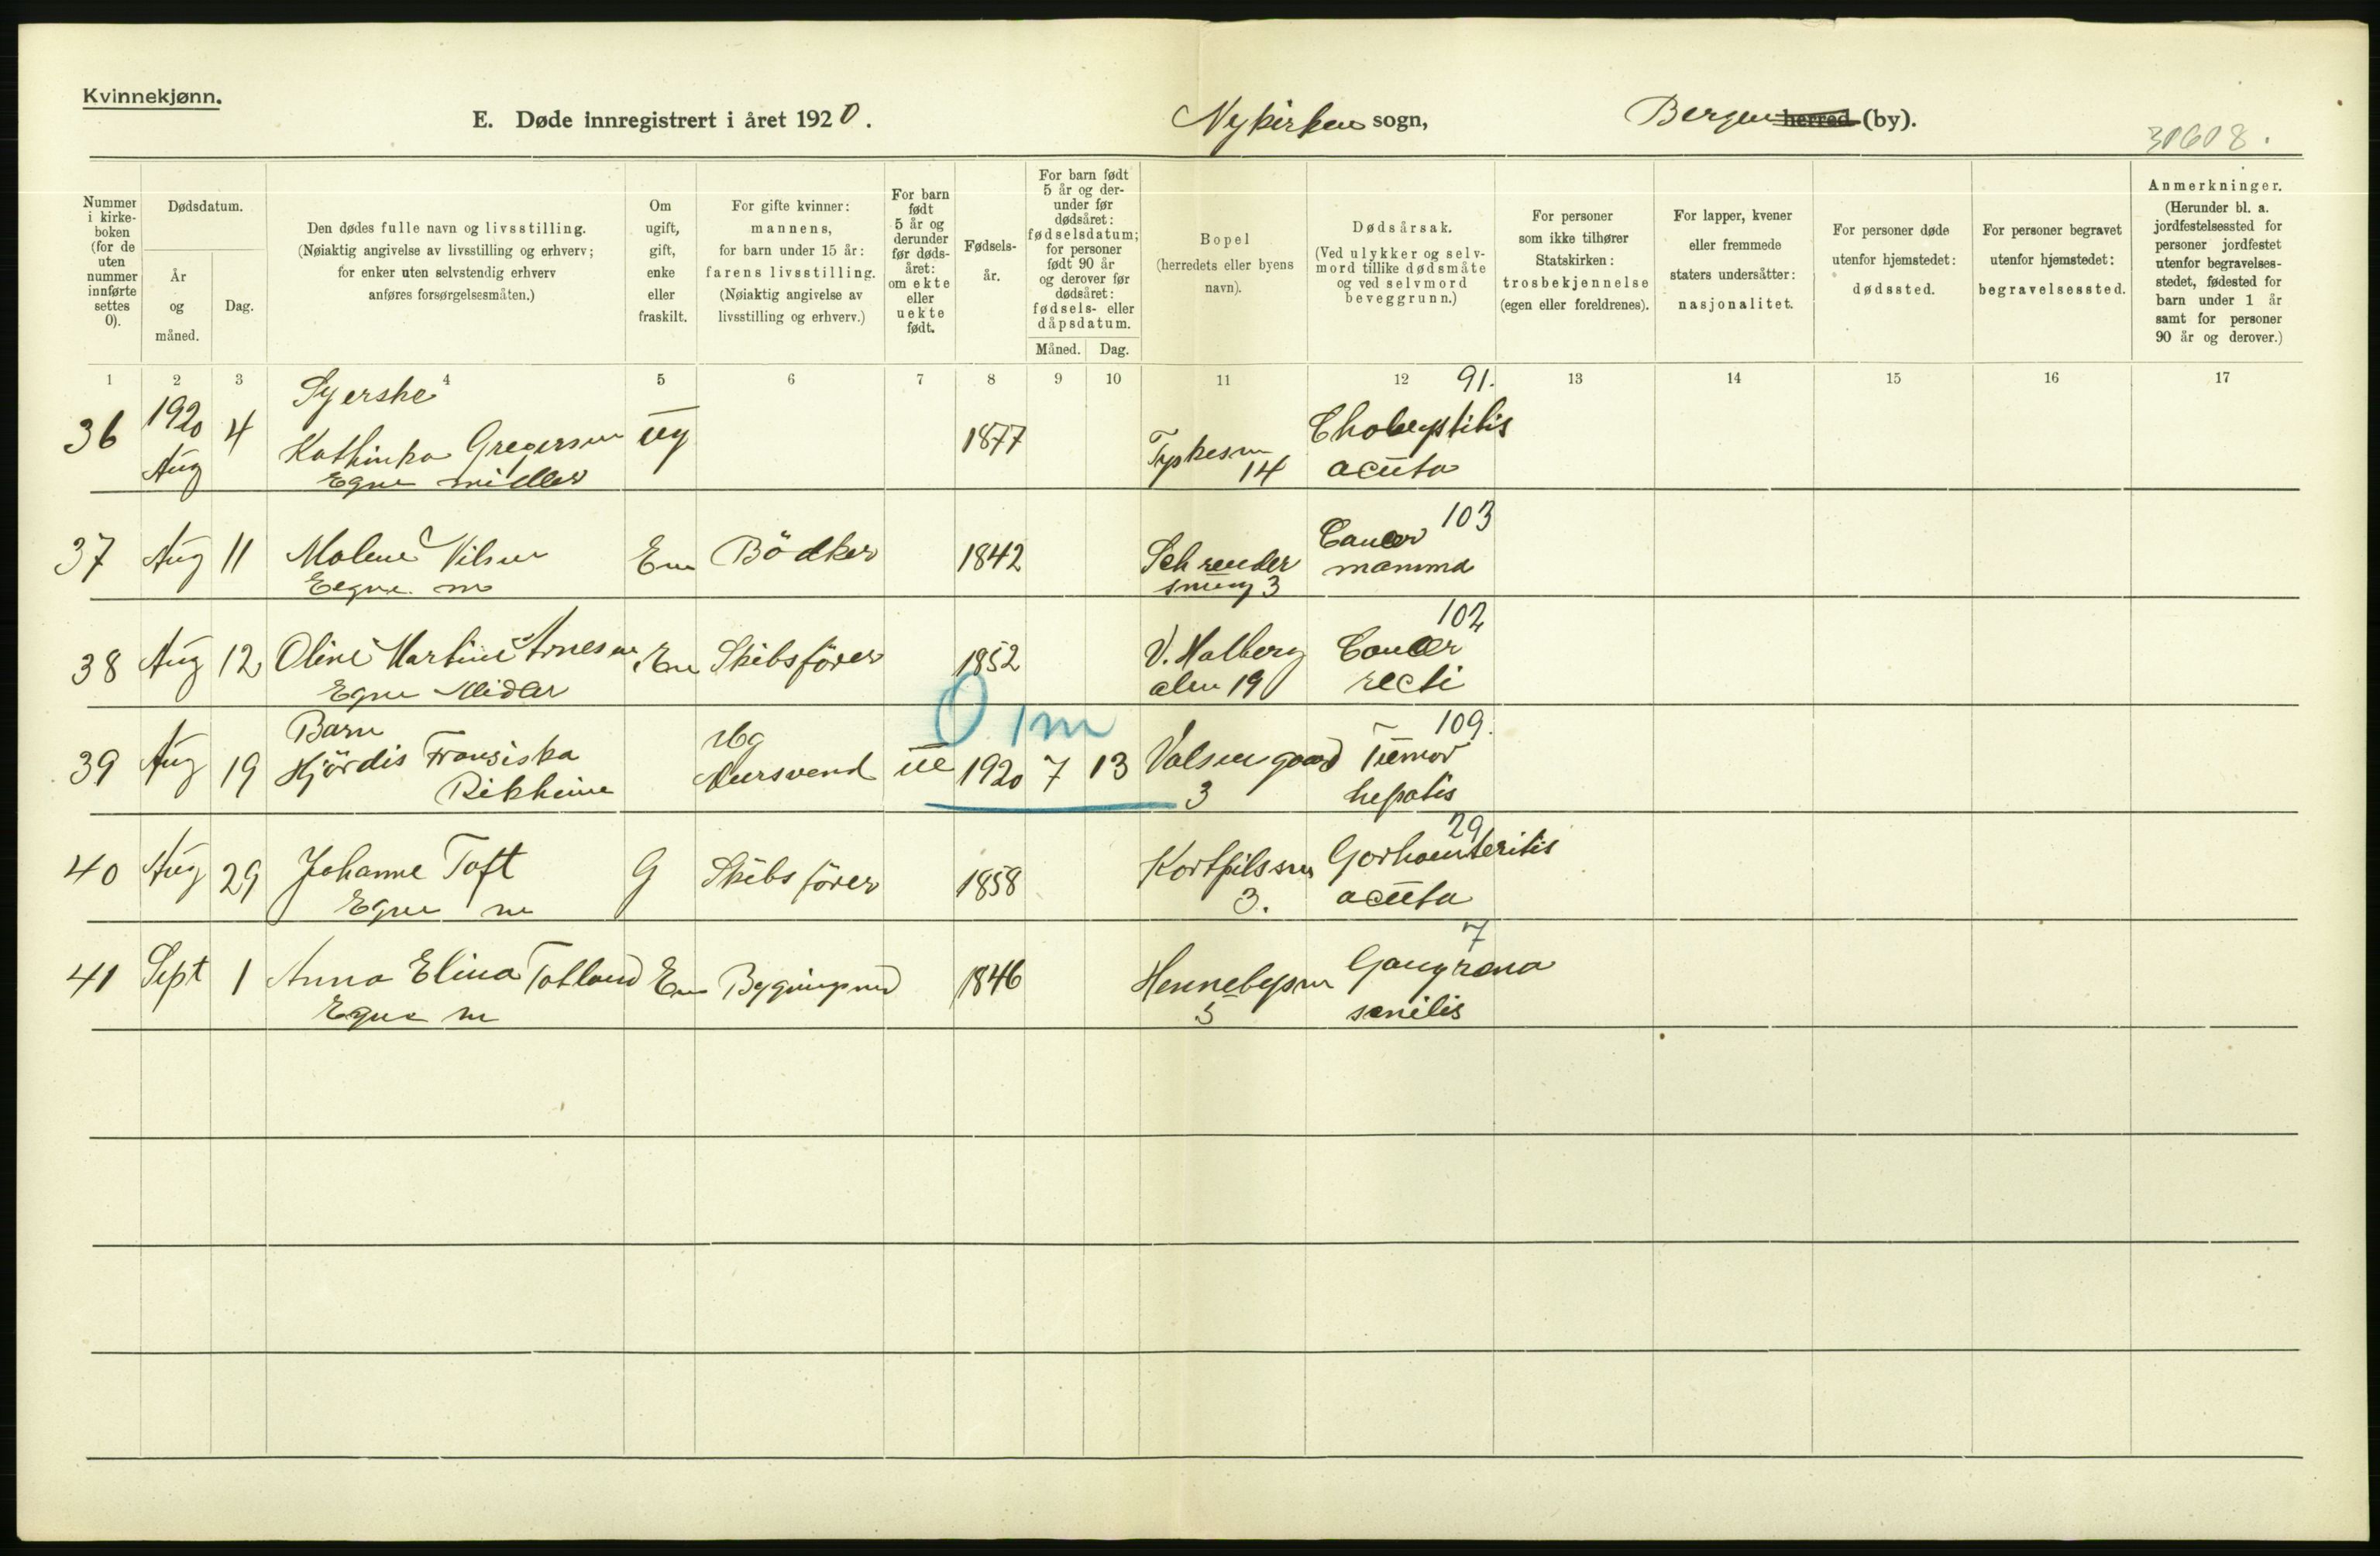 Kvinnekjønn.
E. Døde innregistrert i året 1920.
Nykirken sogn,
Bergen herred (by).
30608.
Nummer i kirke-boken (for de uten nummer innførte settes 0).
Dødsdatum.
År og måned.
Dag.
Den dødes fulle navn og livsstilling.
(Nøiaktig angivelse av livsstilling og erhverv;
for enker uten selvstendig erhverv
anføres forsørgelsesmåten.)
Om ugift, gift, enke eller fraskilt.
For gifte kvinner:
mannens,
for barn under 15 år:
farens livsstilling.
(Nøiaktig angivelse av
livsstilling og erhverv.)
For barn født 5 år og derunder før døds-året: om ekte eller uekte født.
Fødsels-år.
For barn født 5 år og der-under før dødsåret: fødselsdatum; for personer født 90 år og derover før dødsåret: fødsels- eller dåpsdatum.
Måned. Dag.
Bopel
(herredets eller byens
navn).
Dødsårsak.
(Ved ulykker og selv-
mord tillike dødsmåte
og ved selvmord
beveggrunn.)
For personer
som ikke tilhører
Statskirken:
trosbekjennelse
(egen eller foreldrenes).
For lapper, kvener
eller fremmede
staters undersåtter:
nasjonalitet.
For personer døde
utenfor hjemstedet:
dødssted.
For personer begravet
utenfor hjemstedet:
begravelsessted.
Anmerkninger.
(Herunder bl. a.
jordfestelsessted for
personer jordfestet
utenfor begravelses-
stedet, fødested for
barn under 1 år
samt for personer
90 år og derover.)
1 2 3 4 5 6 7 8 9 10 11 12 13 14 15 16 17
Syerske 91.
36 1920 Aug 4 Kathinka Gregersen ug 1877 14
Egne midler acuta
103
37 Aug 11 Malene Nilsen Em Bödker 1842 Cancer
Egne m 3 mamma
102
38 Aug 12 Oline Martine Arnesen Em Skibsförer 1852 V. Holberg Cancer
Egne Midler alm 19 recti
0 1m
Barn 109.
39 Aug 19 Hjördis Fransiska Mursvend ue 1920 7 13 Tumor
Rikheim 3 hepatis
29
40 Aug 29 Johanne Toft G Skibsförer 1858
Egne m 3. acuta
7
41 Sept 1 Anna Elina Totland Em 1846 Gangrena
Egne m 5 senilis